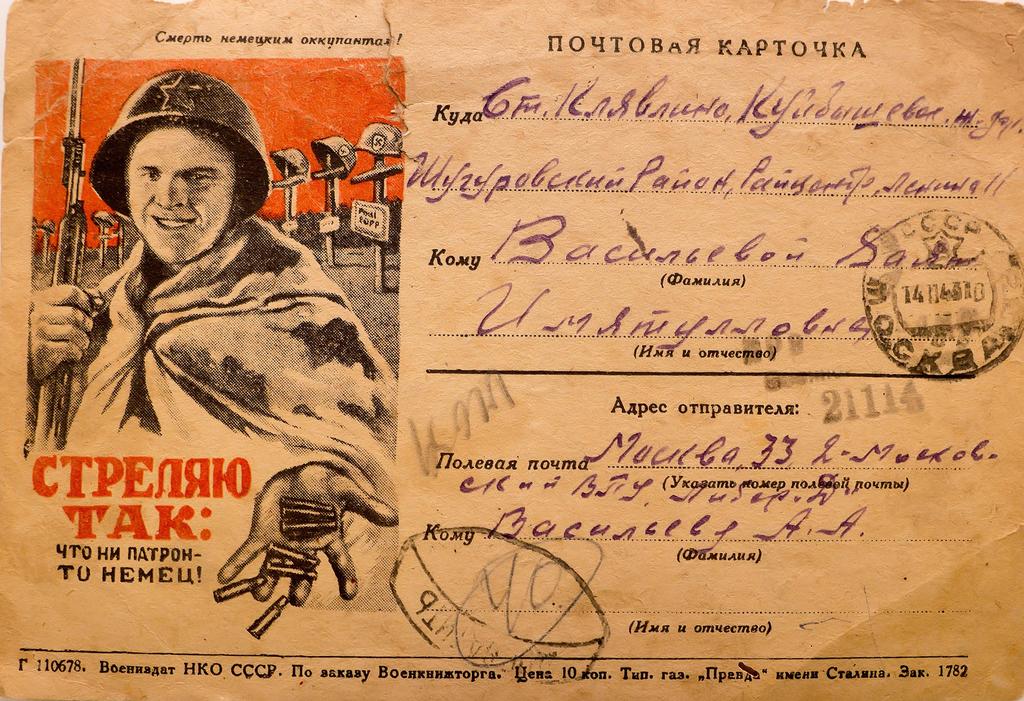 Смерть немецким оккупантам!
ПОЧТОВАЯ КАРТОЧКА
Куда Ст. Клявлино, Куйбышевск. ж-д.
Шугуровский Район, Райцентр, Ленина 11
Кому Васильевой
(Фамилия)
Имятулловне
(Имя и отчество)
СССР
МОСКВА
21114
Адрес отправителя:
Полевая почта Москва, 33, 2-Москов-
ский ВПУ,
(Указать номер полевой почты)
Кому Васильеву А. А.
(Фамилия)
(Имя и отчество)
СТРЕЛЯЮ
ТАК:
ЧТО НИ ПАТРОН-
ТО НЕМЕЦ!
Г 110678. Воениздат НКО СССР. По заказу Военкнижторга. Цена 10 коп. Тип. газ. „Правда“ имени Сталина. Зак. 1782